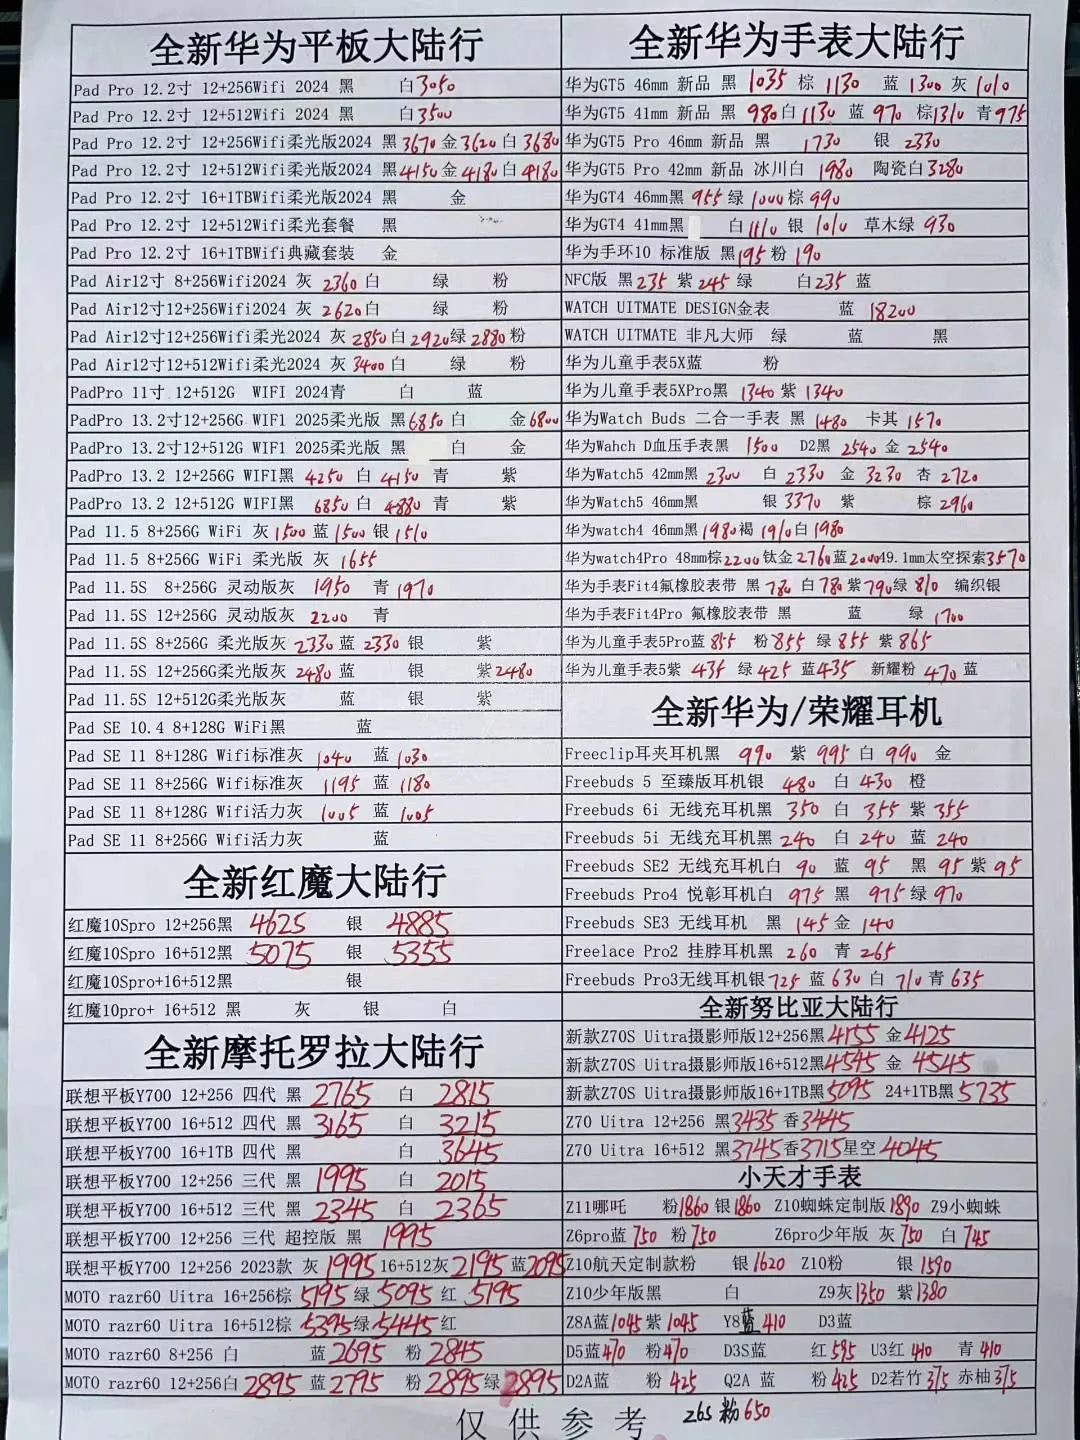 全新华为平板大陆行
Pad Pro 12.2寸 12+256Wifi 2024 黑 白3050
Pad Pro 12.2寸 12+512Wifi 2024 黑 白3500
Pad Pro 12.2寸 12+256Wifi柔光版2024 黑3670金3620白3680
Pad Pro 12.2寸 12+512Wifi柔光版2024 黑4150金4180白4180
Pad Pro 12.2寸 16+1TBWifi柔光版2024 黑 金
Pad Pro 12.2寸 12+512Wifi柔光套餐 黑
Pad Pro 12.2寸 16+1TBWifi典藏套装 金
Pad Air12寸 8+256Wifi2024 灰 2360白 绿 粉
Pad Air12寸12+256Wifi2024 灰 2620白 绿 粉
Pad Air12寸12+256Wifi柔光2024 灰 2850白2920绿2880粉
Pad Air12寸12+512Wifi柔光2024 灰 3400白 绿 粉
PadPro 11寸 12+512G WIFI 2024青 白 蓝
PadPro 13.2寸12+256G WIF1 2025柔光版 黑6850白 金6800
PadPro 13.2寸12+512G WIF1 2025柔光版 黑 白 金
PadPro 13.2 12+256G WIFI黑 4250 白 4150 青 紫
PadPro 13.2 12+512G WIFI黑 6850白 4880 青 紫
Pad 11.5 8+256G WiFi 灰1500蓝1500银1510
Pad 11.5 8+256G WiFi 柔光版 灰 1655
Pad 11.5S 8+256G 灵动版灰 1950 青 1970
Pad 11.5S 12+256G 灵动版灰 2200 青
Pad 11.5S 8+256G 柔光版灰 2330蓝 2330银 紫
Pad 11.5S 12+256G 柔光版灰2480蓝 银 紫2480
Pad 11.5S 12+512G柔光版灰 蓝 银 紫
Pad SE 10.4 8+128G WiFi黑 蓝
Pad SE 11 8+128G Wifi标准灰 1040 蓝 1030
Pad SE 11 8+256G Wifi标准灰 1195 蓝 1180
Pad SE 11 8+128G Wifi活力灰 1005 蓝 1005
Pad SE 11 8+256G Wifi活力灰 蓝
全新红魔大陆行
红魔10Spro 12+256黑 4625 银 4885
红魔10Spro 16+512黑 5075 银 5355
红魔10Spro+16+512黑 银
红魔10pro+ 16+512 黑 灰 银 白
全新摩托罗拉大陆行
联想平板Y700 12+256 四代 黑 2765 白 2815
联想平板Y700 16+512 四代 黑 3165 白 3215
联想平板Y700 16+1TB 四代 黑 白 3645
联想平板Y700 12+256 三代 黑 1995 白 2015
联想平板Y700 16+512 三代 黑 2345 白 2365
联想平板Y700 12+256 三代 超控版 黑 1995
联想平板Y700 12+256 2023款 灰 1995 16+512灰2195蓝2095
MOTO razr60 Uitra 16+256棕 5195 绿 5095 红 5195
MOTO razr60 Uitra 16+512棕 5395绿5445红
MOTO razr60 8+256 白 蓝2695 粉 2845
MOTO razr60 12+256白 2895 蓝2795 粉 2895绿2895
全新华为手表大陆行
华为GT5 46mm 新品 黑 1035 棕 1130 蓝 1300 灰 1010
华为GT5 41mm 新品 黑 980白1130 蓝 970 棕1310 青975
华为GT5 Pro 46mm 新品 黑 1730 银 2330
华为GT5 Pro 42mm 新品 冰川白 1980 陶瓷白3280
华为GT4 46mm黑 955 绿 1000棕 990
华为GT4 41mm黑 白1110 银 1010 草木绿 930
华为手环10 标准版 黑195 粉 190
NFC版 黑 235 紫 245 绿 白235 蓝
WATCH UITMATE DESIGN金表 蓝 18200
WATCH UITMATE 非凡大师 绿 蓝 黑
华为儿童手表5X蓝 粉
华为儿童手表5XPro黑 1340 紫 1340
华为Watch Buds 二合一手表 黑 1480 卡其 1570
华为Wahch D血压手表黑 1500 D2黑 2540 金 2540
华为Watch5 42mm黑 2300 白 2330 金 3230 杏 2720
华为Watch5 46mm黑 银 3370 紫 棕 2960
华为watch4 46mm黑1980褐1910白1980
华为watch4Pro 48mm棕2200钛金2760蓝200049.1mm太空探索3570
华为手表Fit4氟橡胶表带 黑 780 白780紫790绿 810 编织银
华为手表Fit4Pro 氟橡胶表带 黑 蓝 绿 1700
华为儿童手表5Pro蓝 855 粉855 绿 855 紫 865
华为儿童手表5紫 435 绿 425 蓝435 新耀粉 470 蓝
全新华为/荣耀耳机
Freeclip耳夹耳机黑 990 紫 995 白 990 金
Freebuds 5 至臻版耳机银 480 白 430 橙
Freebuds 6i 无线充耳机黑 350 白 355 紫 355
Freebuds 5i 无线充耳机黑 240 白 240 蓝 240
Freebuds SE2 无线充耳机白 90 蓝 95 黑 95 紫 95
Freebuds Pro4 悦彰耳机白 975 黑 975绿 970
Freebuds SE3 无线耳机 黑 145金 140
Freelace Pro2 挂脖耳机黑 260 青 265
Freebuds Pro3无线耳机银725 蓝 630 白 710 青 635
全新努比亚大陆行
新款Z70S Uitra摄影师版12+256黑4155 金4125
新款Z70S Uitra摄影师版16+512黑4545 金 4545
新款Z70S Uitra摄影师版16+1TB黑5095 24+1TB黑5735
Z70 Uitra 12+256 黑3435香3445
Z70 Uitra 16+512 黑3745香3715星空 4045
小天才手表
Z11哪吒 粉1860 银1860 Z10蜘蛛定制版1890 Z9小蜘蛛
Z6pro蓝 750 粉 750 Z6pro少年版 灰 750 白 745
Z10航天定制款粉 银1620 Z10粉 银 1590
Z10少年版黑 白 Z9灰1350 紫 1380
Z8A蓝1045紫 1045 Y8蓝 410 D3蓝
D5蓝470 粉470 D3S蓝 红 595 U3红 410 青 410
D2A蓝 粉 425 Q2A 蓝 粉 425 D2若竹 315 赤柚315
仅供参考 Z6S 粉650